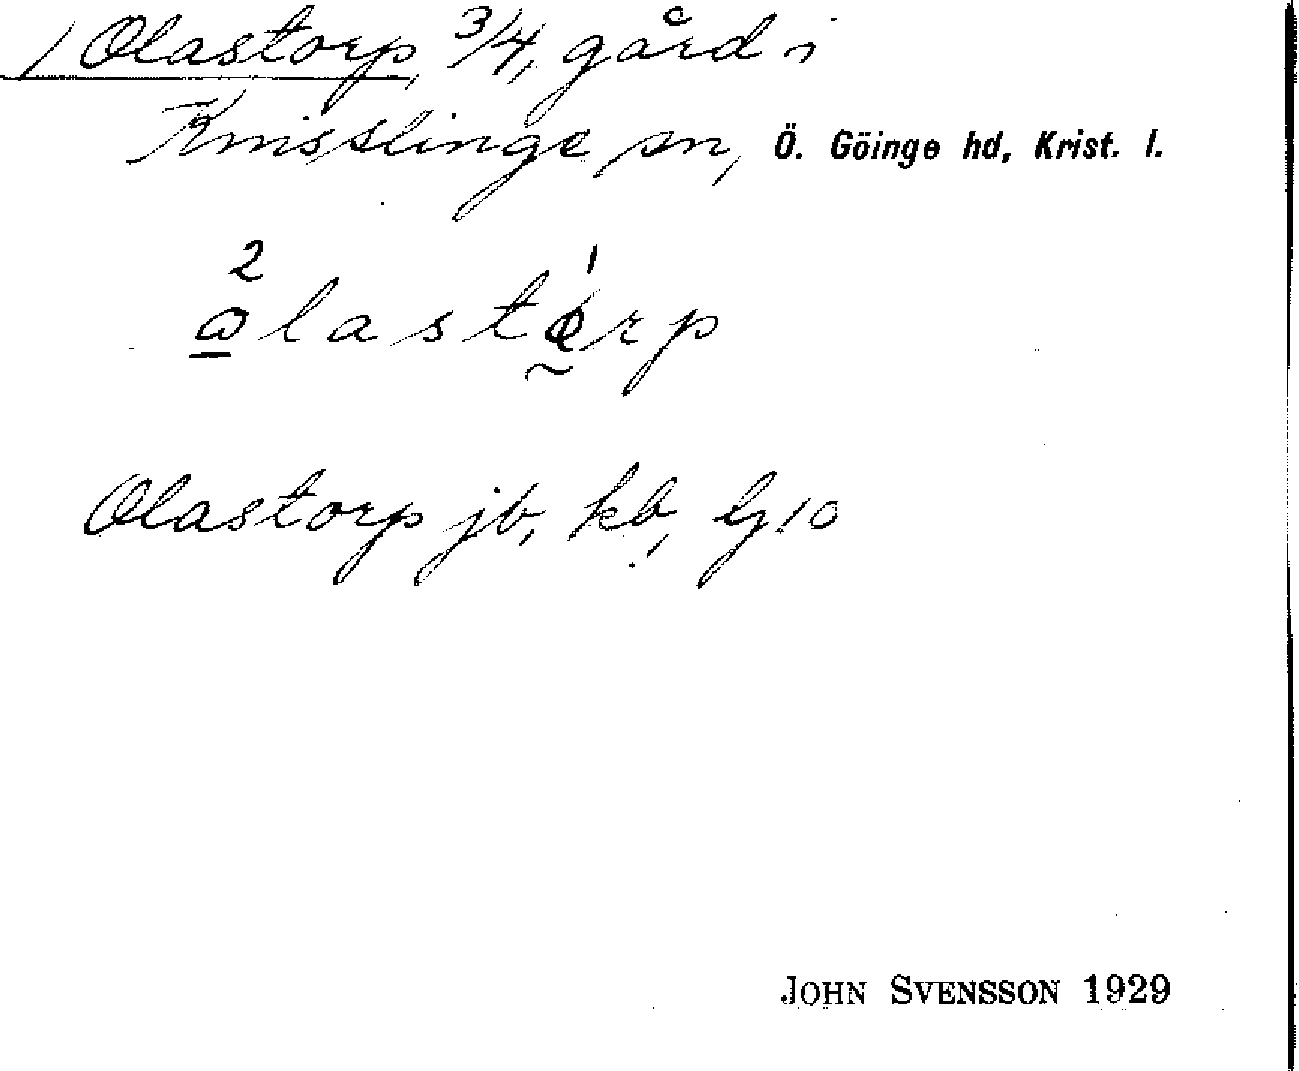 / Olastorp, 3/4, gård i
Knisslinge sn, Ö. Göinge hd, Krist. l.
2 1
olastèrp
Olastorp jb, kb, Lj 10
JOHN SVENSSON 1929